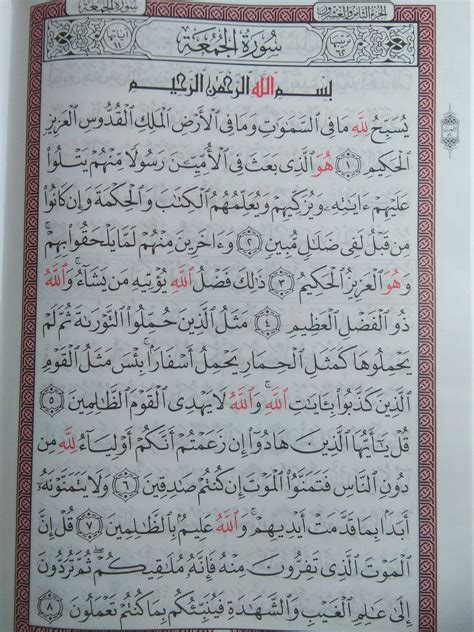 سُورَةُ الجُمُعَةِ
سُورَةُ الجُمُعَةِ
بِسْمِ اللَّهِ الرَّحْمَٰنِ الرَّحِيمِ
يُسَبِّحُ لِلَّهِ مَا فِي ٱلسَّمَٰوَٰتِ وَمَا فِي ٱلْأَرْضِ ٱلْمَلِكِ ٱلْقُدُّوسِ ٱلْعَزِيزِ
ٱلْحَكِيمِ ١ هُوَ ٱلَّذِي بَعَثَ فِي ٱلْأُمِّيِّـۧنَ رَسُولًا مِّنْهُمْ يَتْلُوا۟
عَلَيْهِمْ ءَايَٰتِهِۦ وَيُزَكِّيهِمْ وَيُعَلِّمُهُمُ ٱلْكِتَٰبَ وَٱلْحِكْمَةَ وَإِن كَانُوا۟
مِن قَبْلُ لَفِي ضَلَٰلٍ مُّبِينٍ ٢ وَءَاخَرِينَ مِنْهُمْ لَمَّا يَلْحَقُوا۟ بِهِمْ ۚ
وَهُوَ ٱلْعَزِيزُ ٱلْحَكِيمُ ٣ ذَٰلِكَ فَضْلُ ٱللَّهِ يُؤْتِيهِ مَن يَشَآءُ ۚ وَٱللَّهُ
ذُو ٱلْفَضْلِ ٱلْعَظِيمِ ٤ مَثَلُ ٱلَّذِينَ حُمِّلُوا۟ ٱلتَّوْرَىٰةَ ثُمَّ لَمْ
يَحْمِلُوهَا كَمَثَلِ ٱلْحِمَارِ يَحْمِلُ أَسْفَارًۢا ۚ بِئْسَ مَثَلُ ٱلْقَوْمِ
ٱلَّذِينَ كَذَّبُوا۟ بِـَٔايَٰتِ ٱللَّهِ ۚ وَٱللَّهُ لَا يَهْدِي ٱلْقَوْمَ ٱلظَّٰلِمِينَ ٥
قُلْ يَٰٓأَيُّهَا ٱلَّذِينَ هَادُوٓا۟ إِن زَعَمْتُمْ أَنَّكُمْ أَوْلِيَآءُ لِلَّهِ مِن
دُونِ ٱلنَّاسِ فَتَمَنَّوُا۟ ٱلْمَوْتَ إِن كُنتُمْ صَٰدِقِينَ ٦ وَلَا يَتَمَنَّوْنَهُۥٓ
أَبَدًۢا بِمَا قَدَّمَتْ أَيْدِيهِمْ ۚ وَٱللَّهُ عَلِيمٌۢ بِٱلظَّٰلِمِينَ ٧ قُلْ إِنَّ
ٱلْمَوْتَ ٱلَّذِي تَفِرُّونَ مِنْهُ فَإِنَّهُۥ مُلَٰقِيكُمْ ۖ ثُمَّ تُرَدُّونَ
إِلَىٰ عَٰلِمِ ٱلْغَيْبِ وَٱلشَّهَٰدَةِ فَيُنَبِّئُكُم بِمَا كُنتُمْ تَعْمَلُونَ ٨